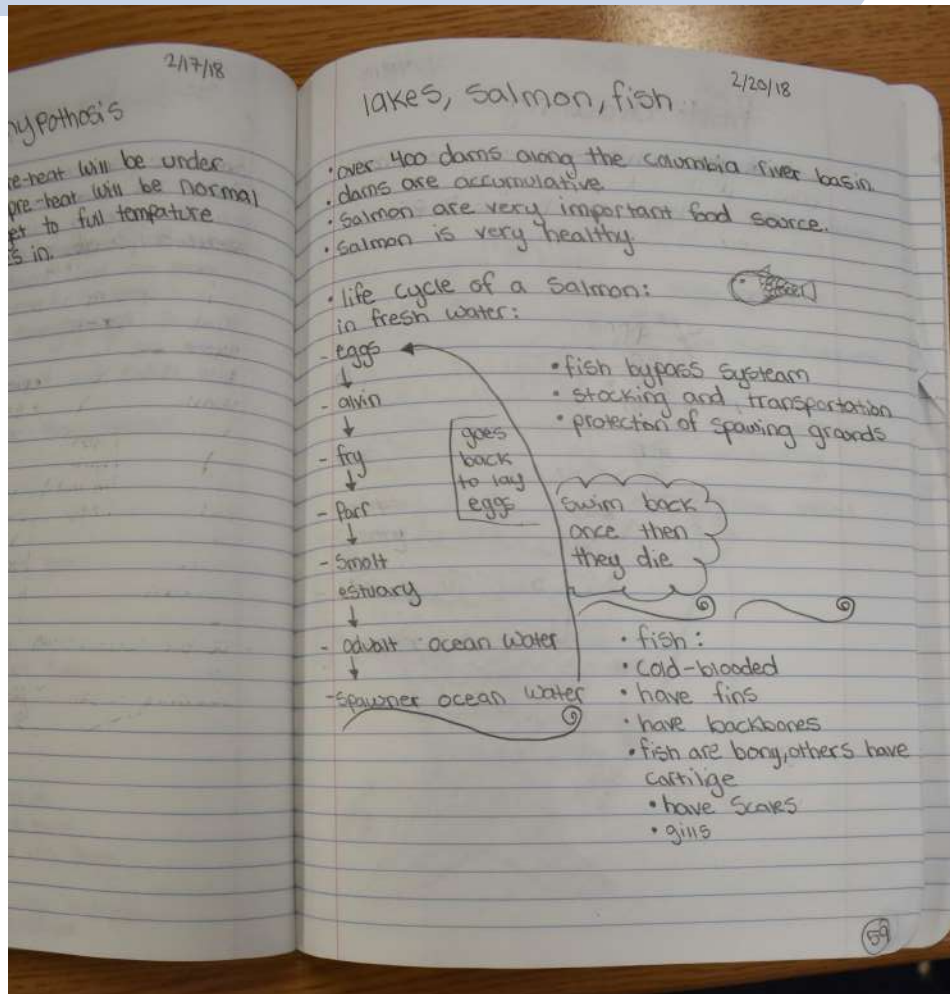 2/17/18
hypothosis
re-heat will be under
pre-heat will be normal
et to full tempature
s in.
lakes, salmon, fish
2/20/18
• over 400 dams along the columbia river basin.
• dams are accumulative
• Salmon are very important food source.
• Salmon is very healthy.
• life cycle of a Salmon:
in fresh water:
- eggs
- alvin
- fry
- Parr
- Smolt
estuary
- advalt ocean water
- Spawner ocean water
goes
back
to lay
eggs
• fish bypass systeam
• stocking and transportation
• protection of spawing grounds
swim back
once then
they die
• fish:
• cold-blooded
• have fins
• have backbones
• fish are bony, others have
cartilige
• have Scales
• gills
59